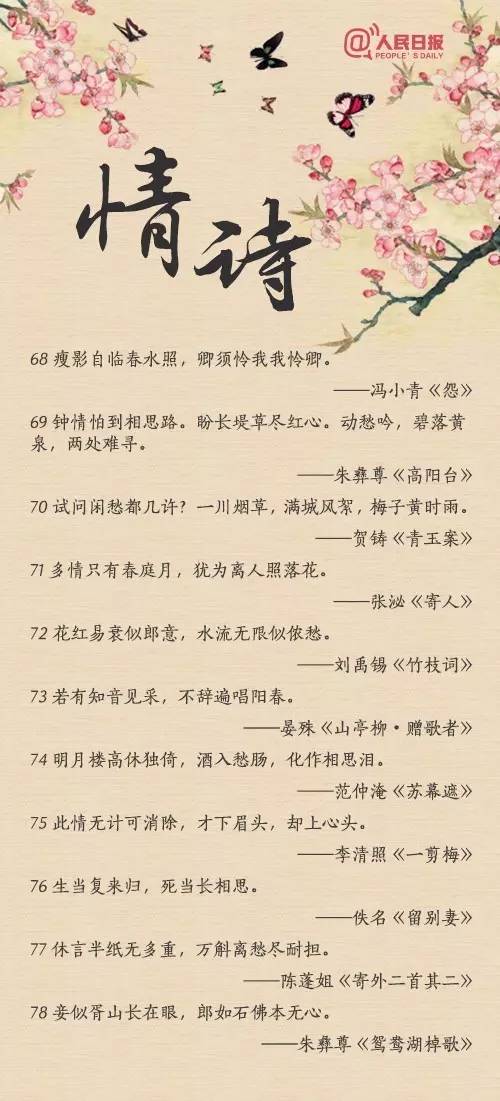 @人民日报
PEOPLE'S DAILY
情诗
68 瘦影自临春水照，卿须怜我我怜卿。
——冯小青《怨》
69 钟情怕到相思路。盼长堤草尽红心。动愁吟，碧落黄
泉，两处难寻。
——朱彝尊《高阳台》
70 试问闲愁都几许？一川烟草，满城风絮，梅子黄时雨。
——贺铸《青玉案》
71 多情只有春庭月，犹为离人照落花。
——张泌《寄人》
72 花红易衰似郎意，水流无限似侬愁。
——刘禹锡《竹枝词》
73 若有知音见采，不辞遍唱阳春。
——晏殊《山亭柳·赠歌者》
74 明月楼高休独倚，酒入愁肠，化作相思泪。
——范仲淹《苏幕遮》
75 此情无计可消除，才下眉头，却上心头。
——李清照《一剪梅》
76 生当复来归，死当长相思。
——佚名《留别妻》
77 休言半纸无多重，万斛离愁尽耐担。
——陈蓬姐《寄外二首其二》
78 妾似胥山长在眼，郎如石佛本无心。
——朱彝尊《鸳鸯湖棹歌》